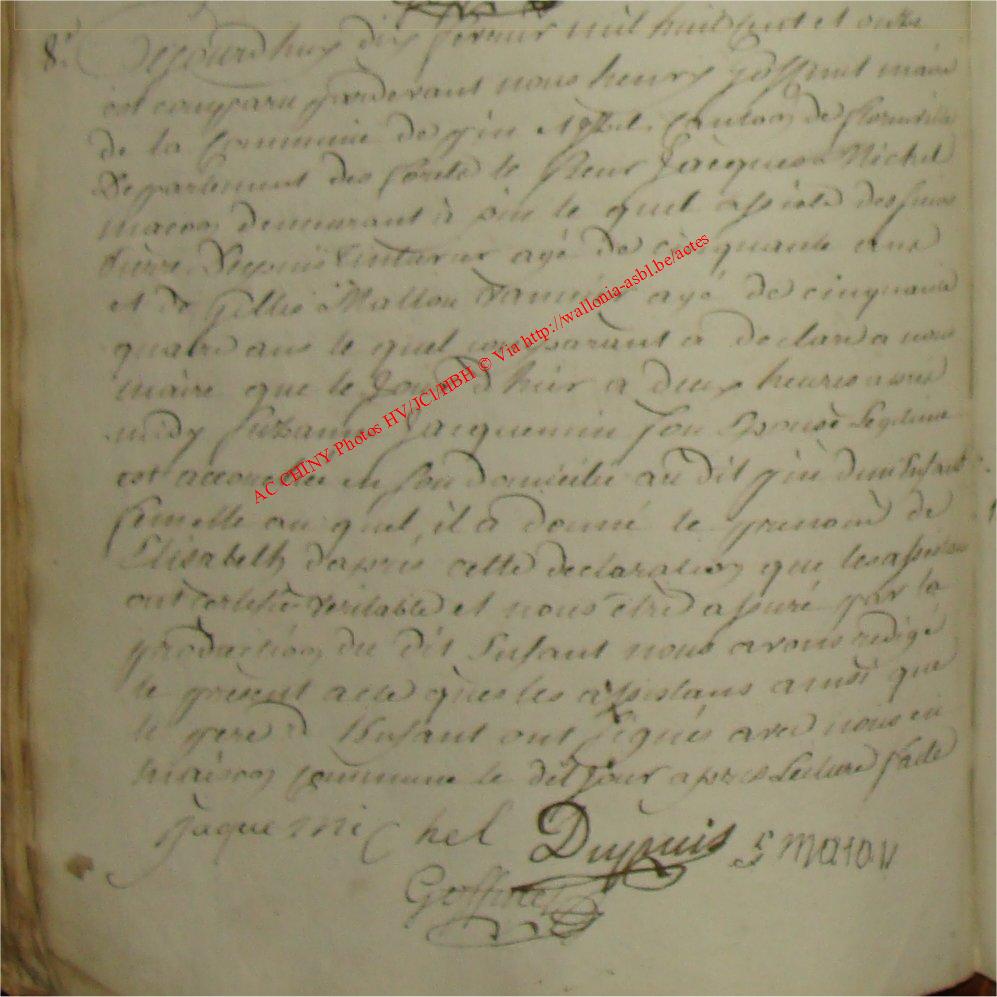 8.e Cejourdhuy dix fevrier mil huit cent et onze
est comparu pardevant nous henry Goffinet maire
de la Commune de pin canton de florenville
Departement des forets le sieur Jacques Michel
macon demeurant à pin le quel assisté des sieurs
pierre Dupuis age de cinquante ans
et de Gilles Mallou agé de cinquante
quatre ans le quel comparant a declaré a nous
maire que le Jour d hier a deux heures apres
midy Suzanne Jacquemin son Epouse Legitime
est accouchée en son domicilie au dit pin dun Enfant
femelle au quel il a donné le prenom de
Elisabeth dapres cette declaration que les assistans
ont certifié veritable et nous être assuré par la
production du dit Enfant nous avons redigé
le présent acte que les assistans ainsi que
le pere d lEnfant ont signés avec nous en
maison commune le dit jour apres Lecture faite
jaque michel Dupuis Matou
Goffinet
AC CHINY Photos HV/JCl/HBH © Via http://wallonia-asbl.be/actes